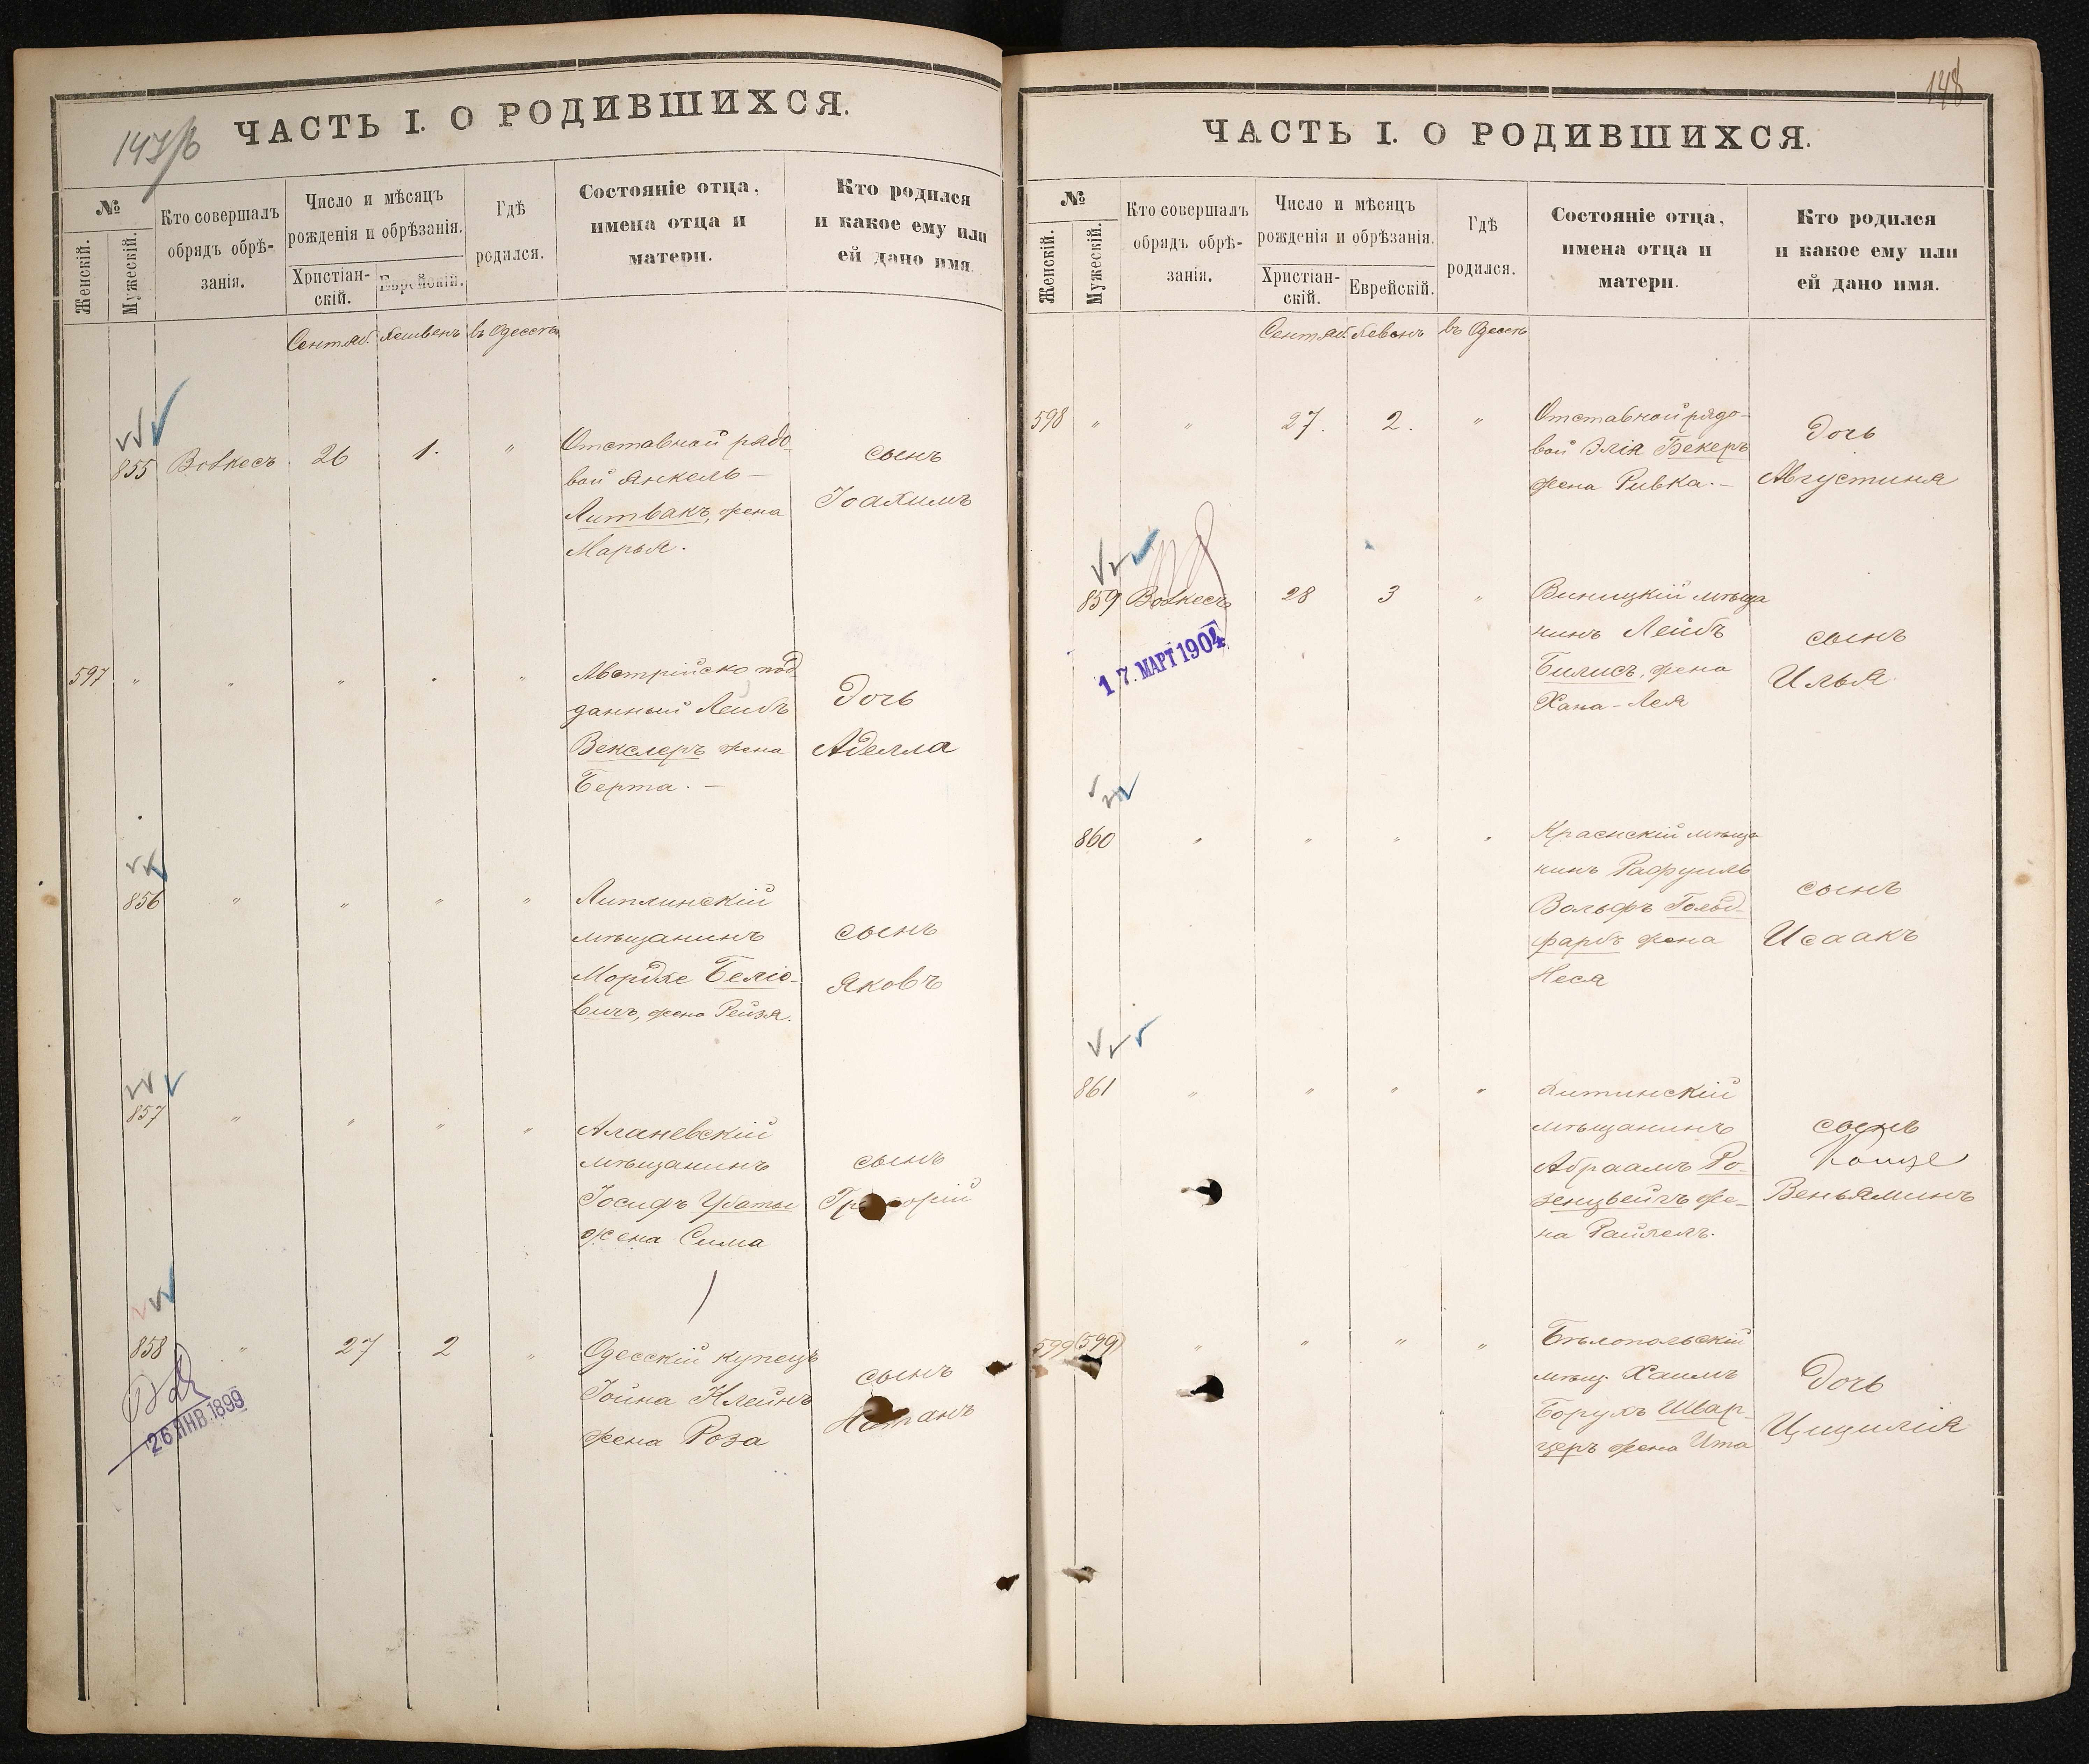 147/б
ЧАСТЬ I. О РОДИВШИХСЯ.
№
Женскій.
Мужескій.
Кто совершалъ
обрядъ обрѣ-
занія.
Число и мѣсяцъ
рожденія и обрѣзанія.
Христіан-
скій.
Еврейскій.
Гдѣ
родился.
Состояніе отца,
имена отца и
матери.
Кто родился
и какое ему или
ей дано имя.
Сентяб. Хешвенъ въ Одессѣ
855 Вовкесъ 26 1. "
Отставной рядо-
вой Янкель-
Литвакъ, жена
Марья.
сынъ
Іоахимъ
597 " " " " "
Австрійско под
данный Лейбъ
Векслеръ жена
Берта. -
Дочь
Аделла
856 " " " "
Липлинскій
мѣщанинъ
Мордхе Беліо-
вичъ, жена Рейзя.
сынъ
Яковъ
857 " " " "
мѣщанинъ
Іосифъ
жена Сима
сынъ
858 " 27 2 "
Одесскій купецъ
Іойна Клейнъ
жена Роза
сынъ
Натанъ
26 ЯНВ. 1899
148
ЧАСТЬ I. О РОДИВШИХСЯ.
№
Женскій.
Мужескій.
Кто совершалъ
обрядъ обрѣ-
занія.
Число и мѣсяцъ
рожденія и обрѣзанія.
Христіан-
скій.
Еврейскій.
Гдѣ
родился.
Состояніе отца,
имена отца и
матери.
Кто родился
и какое ему или
ей дано имя.
Сентяб. въ Одессѣ
598 " " 27. 2. "
Отставной рядо-
вой Элія Бекеръ
жена Ривка. -
Дочь
Августиня
859 Вовкесъ 28 3 "
17. МАРТ 1904
Виницкій мѣща
нинъ Лейбъ
Билисъ, жена
Хана-Лея
сынъ
Илья
860 " " " "
Краснскій мѣща
нинъ Рафуиль
Вольфъ Гольд-
фарбъ жена
Неся
сынъ
Исаакъ
861 " " " "
Литинскій
мѣщанинъ
Абраамъ Ро-
зенцвейгъ же-
на Райзель.
сынъ
Веньяминъ
599 (599) " " " "
Бѣлопольскій
мѣщ. Хаимъ
Борухъ Швар-
церъ жена Ита
Дочь
Цицилія